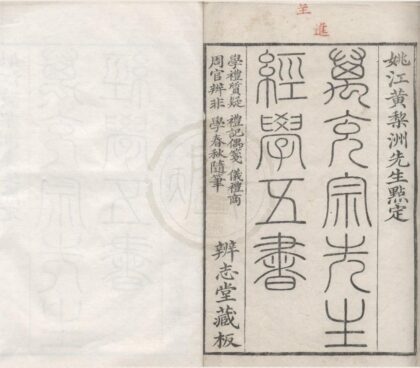 呈進
姚江黃梨洲先生點定
萬充宗先生
經學五書
學禮質疑 禮記偶箋 儀禮商
周官辨非 學春秋隨筆
辨志堂藏板